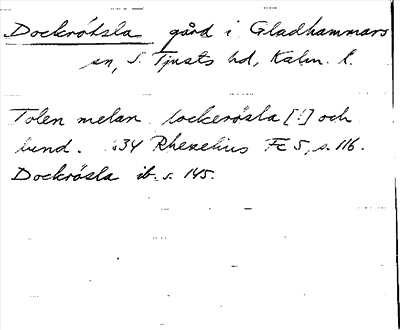 Dockrössla gård i Gladhammars
sn, S. Tjusts hd, Kalm. l.
Tolen melan lockerösla [!] och
lund. 34 Rhezelius Fc 5, s. 116.
Dockrösla ib. s. 145.